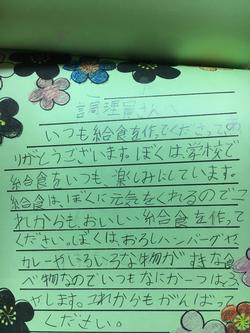 調理員さんへ
いつも給食を作ってくださってあ
りがとうございます。ぼくは、学校で
給食をいつも、楽しみにしています。
給食は、ぼくに元気をくれるのでこ
れからも、おいしい給食を作って
ください。ぼくは、おろしハンバーグや
カレーやいろいろな物が好きな食
べ物なのでいつもなにか一つは
やします。これからもがんばって
ください。